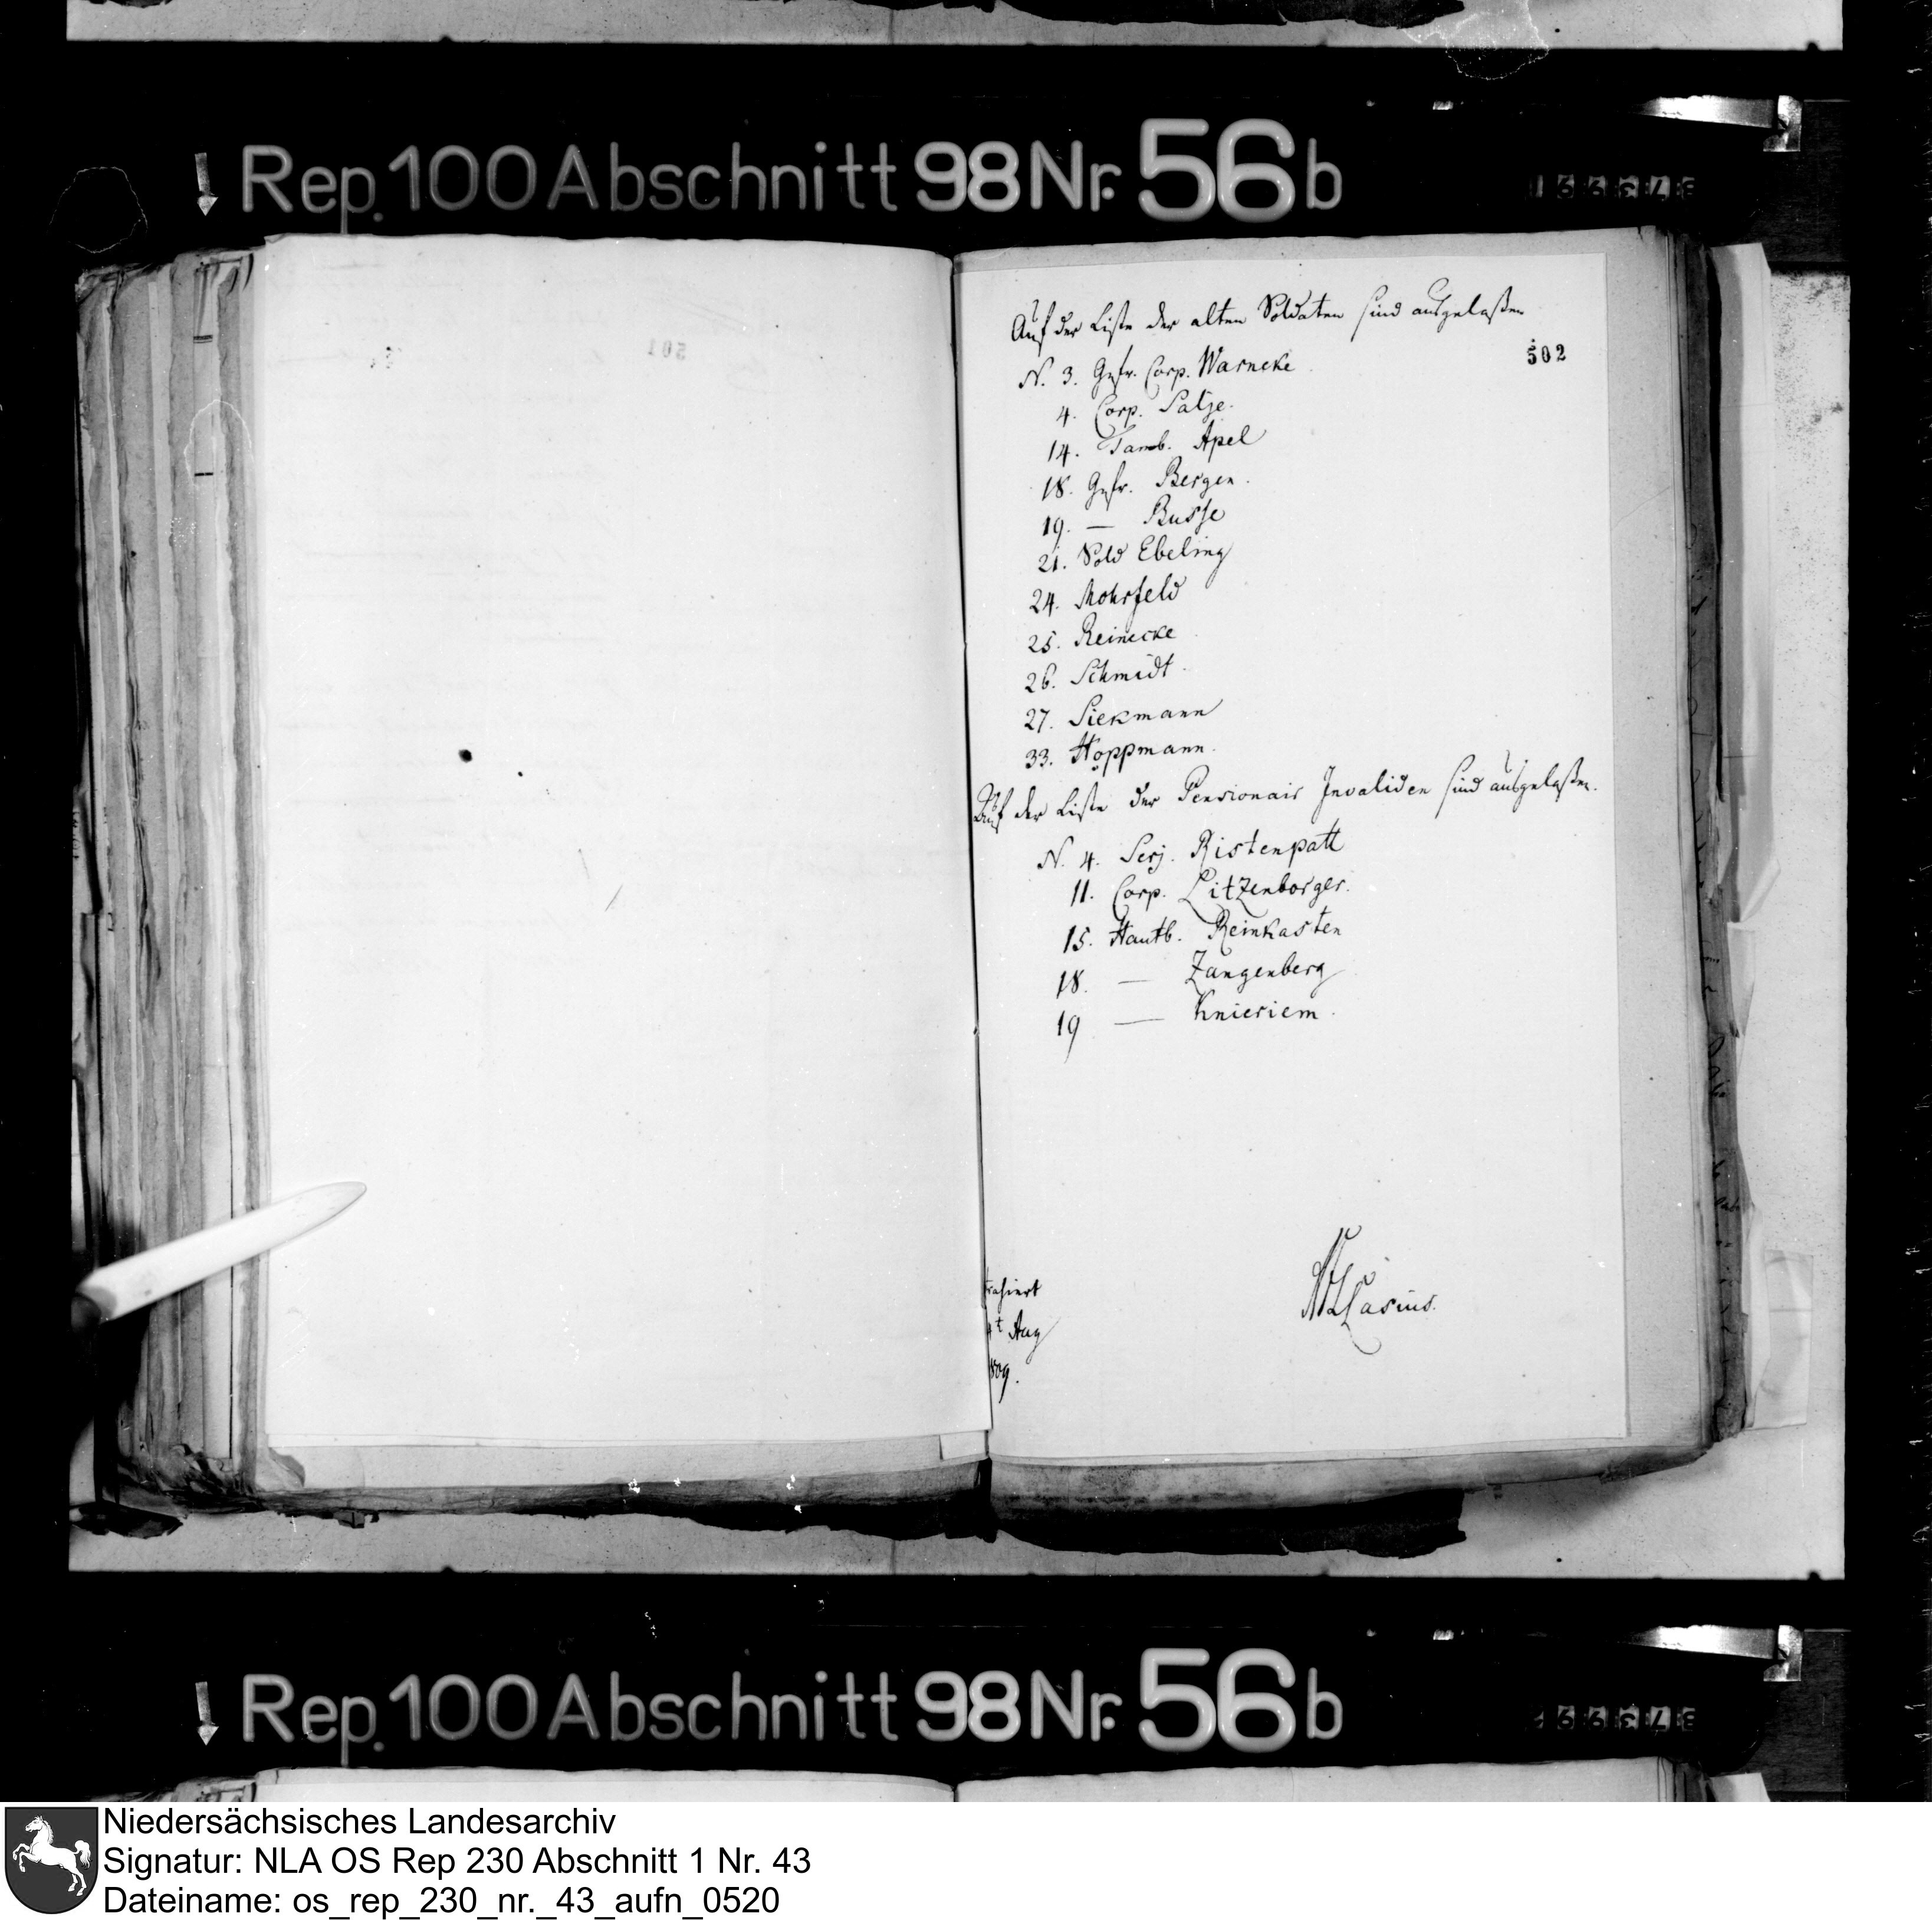 Rep. 100 Abschnitt 98 Nr. 56 b
501
Auf der Liste der alten Soldaten sind ausgelaßen
502
N. 3. Gefr. Corp. Warneke
4. Corp. Satze.
14. Tamb. Apel
18. Gefr. Bergen.
19. — Busse
21. Sold Ebeling
24. Mohrfeld
25. Reinecke
26. Schmidt
27. Siekmann
33. Hoppmann.
Auf der Liste der Pensionair Invaliden sind ausgelaßen.
N. 4. Serj. Ristenpatt
11. Corp. Litzenborger.
15. Hautb. Reinkasten
18. — Zangenberg
19 — Knieriem.
trahiert
t Aug
809.
Lasius.
Rep. 100 Abschnitt 98 Nr. 56 b
Niedersächsisches Landesarchiv
Signatur: NLA OS Rep 230 Abschnitt 1 Nr. 43
Dateiname: os_rep_230_nr._43_aufn_0520